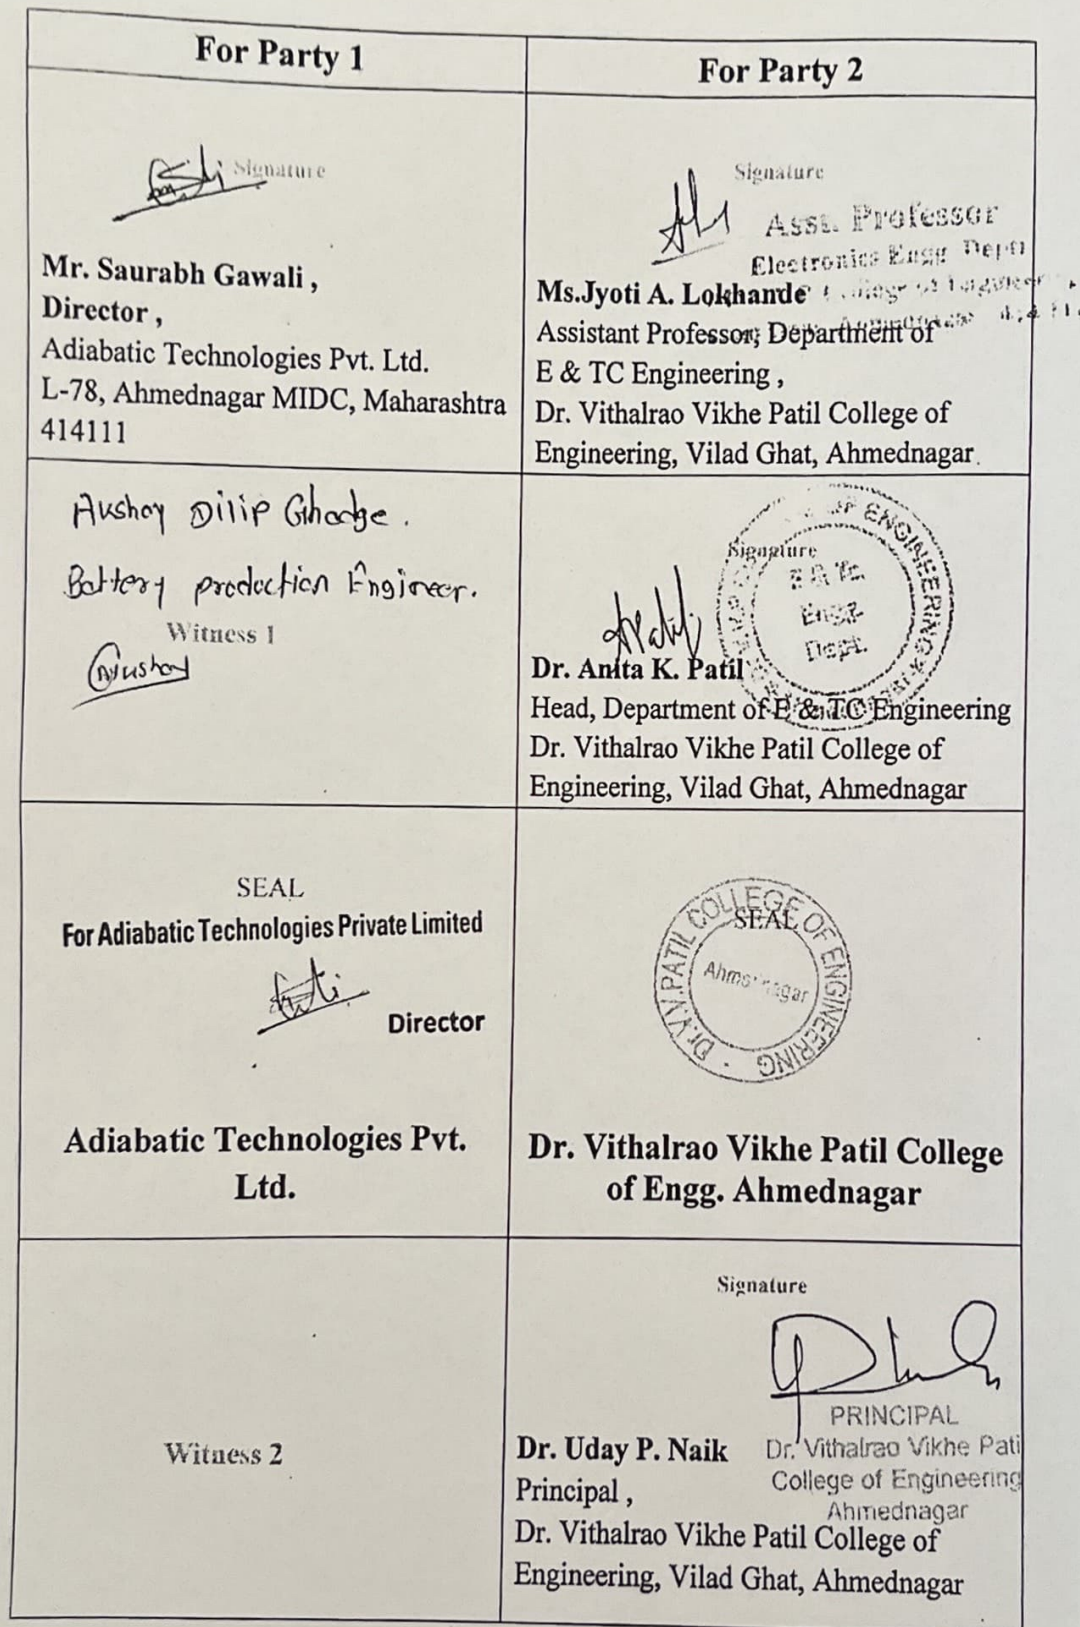 For Party 1
For Party 2
Signature
Mr. Saurabh Gawali ,
Director ,
Adiabatic Technologies Pvt. Ltd.
L-78, Ahmednagar MIDC, Maharashtra
414111
Signature
Asst. Professor
Electronics Engg Deptt
Ms.Jyoti A. Lokhande
Assistant Professor, Department of
E & TC Engineering ,
Dr. Vithalrao Vikhe Patil College of
Engineering, Vilad Ghat, Ahmednagar.
Akshay Dilip Ghadge.
Battery production Engineer.
Witness 1
Signature
OF ENGINEERING
E & Tc
Engg.
Dept.
Dr. Anita K. Patil
Head, Department of E & TC Engineering
Dr. Vithalrao Vikhe Patil College of
Engineering, Vilad Ghat, Ahmednagar
SEAL
For Adiabatic Technologies Private Limited
Director
Adiabatic Technologies Pvt.
Ltd.
SEAL
Dr.V.V.PATIL COLLEGE OF ENGINEERING
Ahmednagar
Dr. Vithalrao Vikhe Patil College
of Engg. Ahmednagar
Witness 2
Signature
PRINCIPAL
Dr. Vithalrao Vikhe Pati
College of Engineering
Ahmednagar
Dr. Uday P. Naik
Principal ,
Dr. Vithalrao Vikhe Patil College of
Engineering, Vilad Ghat, Ahmednagar